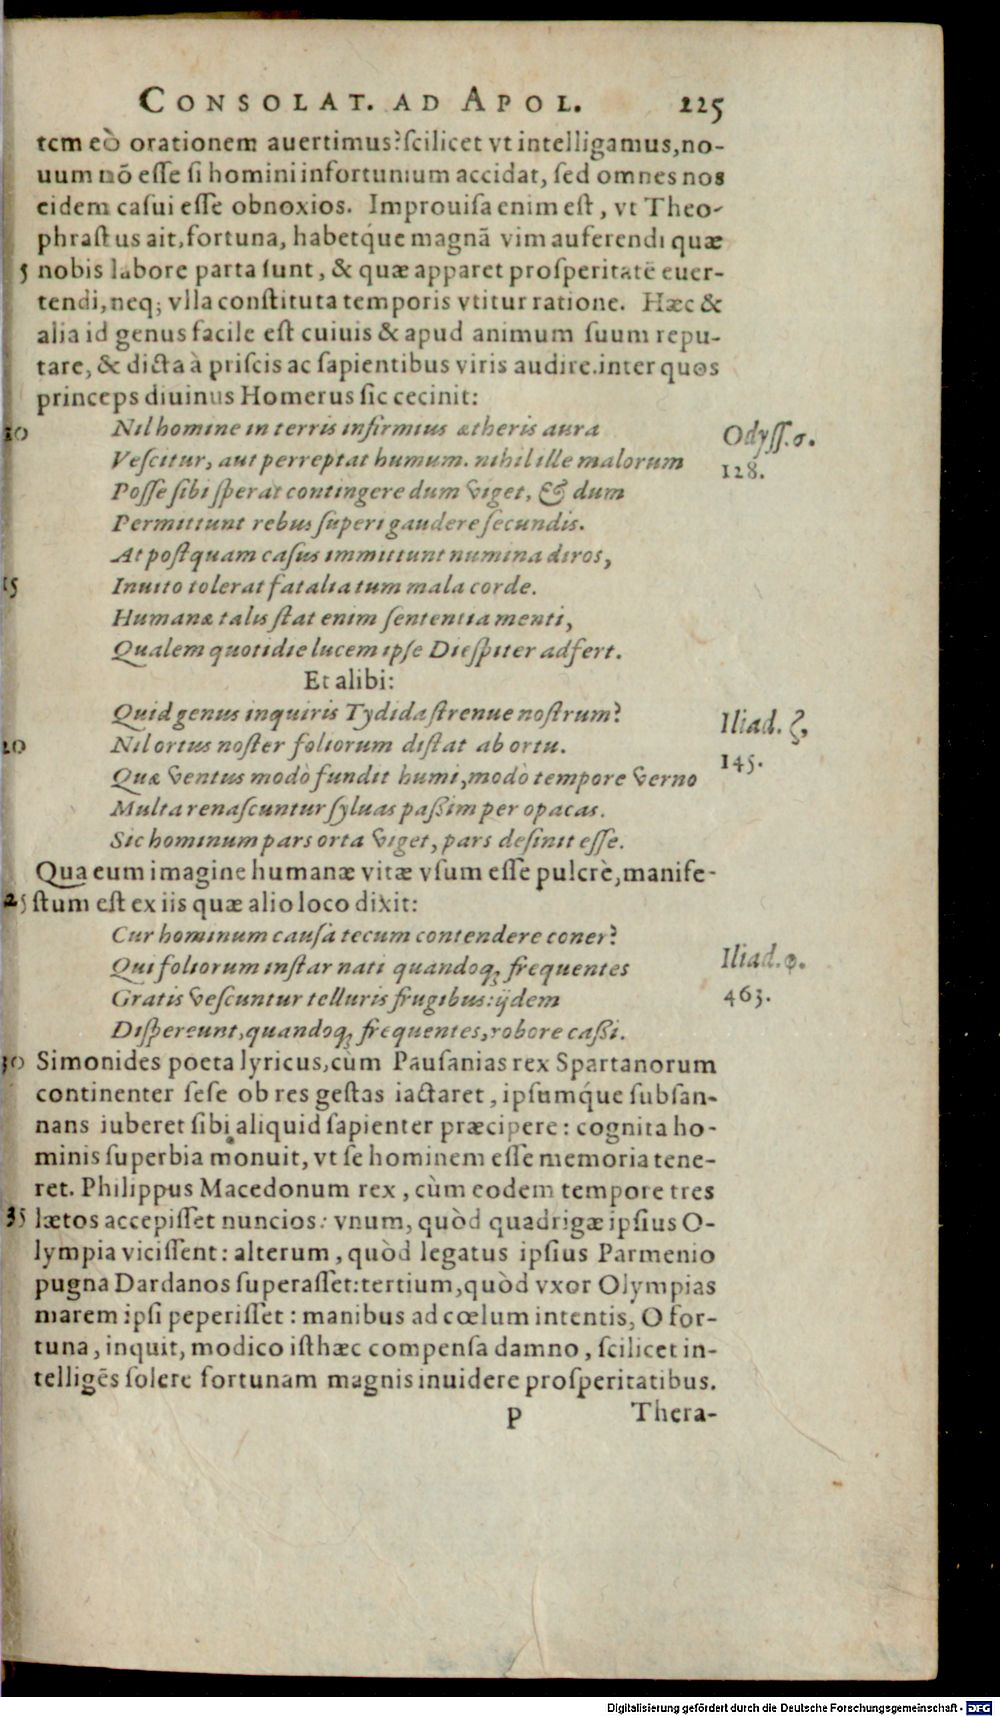 CONSOLAT. AD APOL. 225
tem eò orationem auertimus? ſcilicet vt intelligamus, no-
uum nõ eſſe ſi homini infortunium accidat, ſed omnes nos
eidem caſui eſſe obnoxios. Improuiſa enim eſt, vt Theo-
phraſtus ait, fortuna, habetq́ue magnã vim auferendi quæ
5 nobis labore parta ſunt, & quæ apparet proſperitatẽ euer-
tendi, neq; vlla conſtituta temporis vtitur ratione. Hæc &
alia id genus facile eſt cuiuis & apud animum ſuum repu-
tare, & dicta à priſcis ac ſapientibus viris audire. inter quos
princeps diuinus Homerus ſic cecinit:
10 Nil homine in terris infirmius ætheris aura
Odyſſ. σ.
Veſcitur, aut perreptat humum. nihil ille malorum
128.
Poſſe ſibi ſperat contingere dum viget, & dum
Permittunt rebus ſuperi gaudere ſecundis.
At poſtquam caſus immittunt numina diros,
15 Inuito tolerat fatalia tum mala corde.
Humanæ talis ſtat enim ſententia menti,
Qualem quotidie lucem ipſe Dieſpiter adfert.
Et alibi:
Quid genus inquiris Tydida ſtrenue noſtrum?
Iliad. ζ,
20 Nil ortus noſter foliorum diſtat ab ortu.
145.
Quæ ventus modò fundit humi, modò tempore verno
Multa renaſcuntur ſyluas paßim per opacas.
Sic hominum pars orta viget, pars deſinit eſſe.
Qua eum imagine humanæ vitæ vſum eſſe pulcrè, manife-
25 ſtum eſt ex iis quæ alio loco dixit:
Cur hominum cauſà tecum contendere coner?
Iliad. φ.
Qui foliorum inſtar nati quandoq; frequentes
463.
Gratis veſcuntur telluris frugibus: ijdem
Diſpereunt, quandoq; frequentes, robore caßi.
30 Simonides poeta lyricus, cùm Pauſanias rex Spartanorum
continenter ſeſe ob res geſtas iactaret, ipſumq́ue ſubſan-
nans iuberet ſibi aliquid ſapienter præcipere: cognita ho-
minis ſuperbia monuit, vt ſe hominem eſſe memoria tene-
ret. Philippus Macedonum rex, cùm eodem tempore tres
35 lætos accepiſſet nuncios: vnum, quòd quadrigæ ipſius O-
lympia viciſſent: alterum, quòd legatus ipſius Parmenio
pugna Dardanos ſuperaſſet: tertium, quòd vxor Olympias
marem ipſi peperiſſet: manibus ad cœlum intentis, O for-
tuna, inquit, modico iſthæc compenſa damno, ſcilicet in-
telligẽs ſolere fortunam magnis inuidere proſperitatibus.
P Thera-
Digitalisierung gefördert durch die Deutsche Forschungsgemeinschaft - DFG